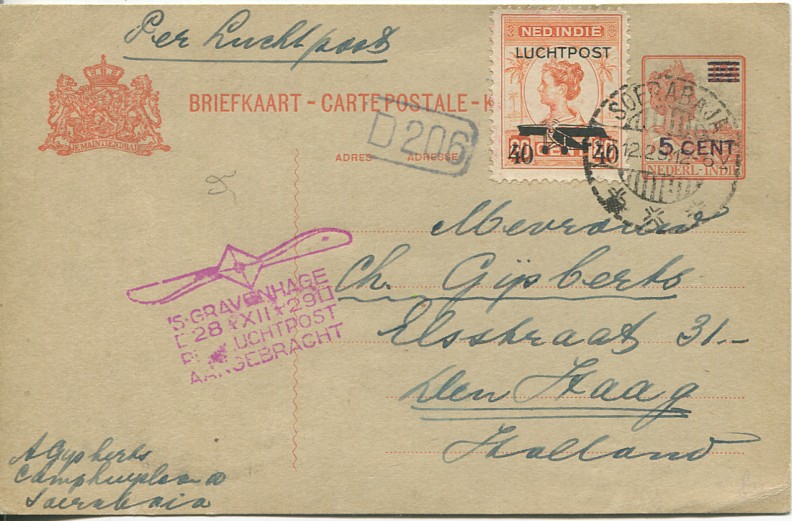 Per Luchtpost
NED. INDIË
LUCHTPOST
40 40
BRIEFKAART - CARTE POSTALE - K
D 206
ADRES ADRESSE
SOERABAJA
5 CENT
NEDERL-INDIË
JE MAINTIENDRAI
Mevrouw
Ch. Gijsberts
Elsstraat 31.-
Den Haag
Holland
'S-GRAVENHAGE
28 XII 29
LUCHTPOST
AANGEBRACHT
A Gijsberts
Soerabaia